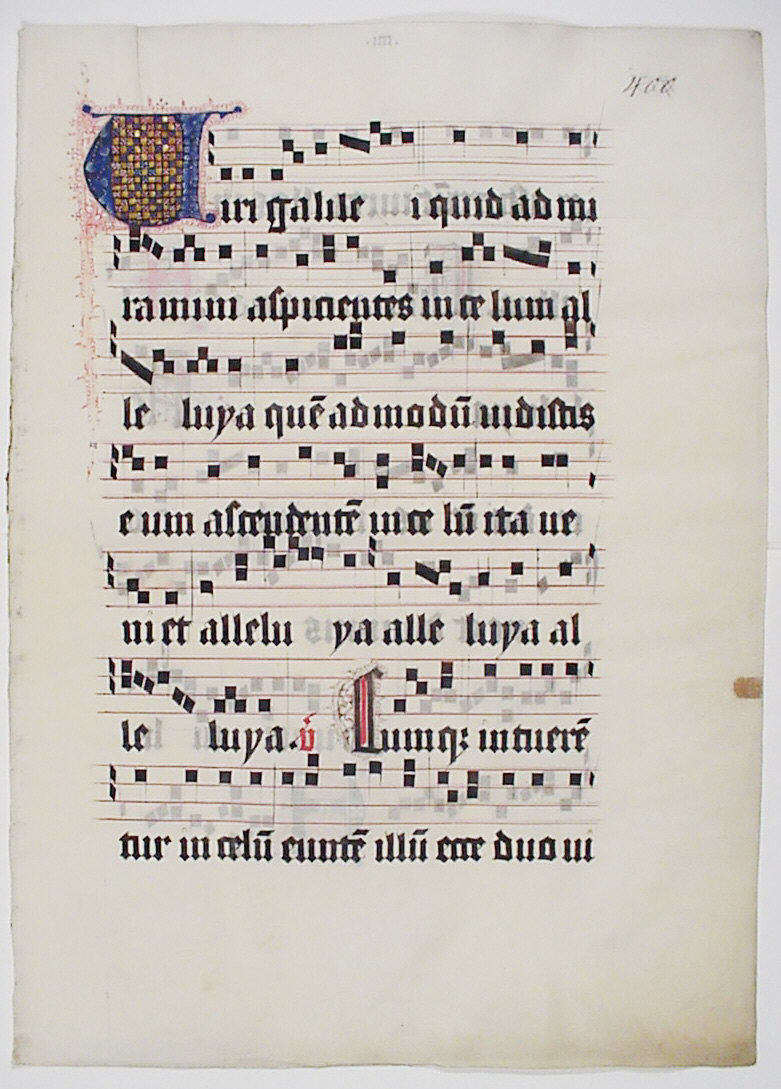 .iii.
400
Viri galile i quid ad mi
ramini aspicientes in ce lum al
le luya quē ad modū uidistis
e um ascendentē in ce lū ita ue
ni et allelu ya alle luya al
le luya. v̄ Cumq; intuerē
tur in celū euntē illū ecce duo ui